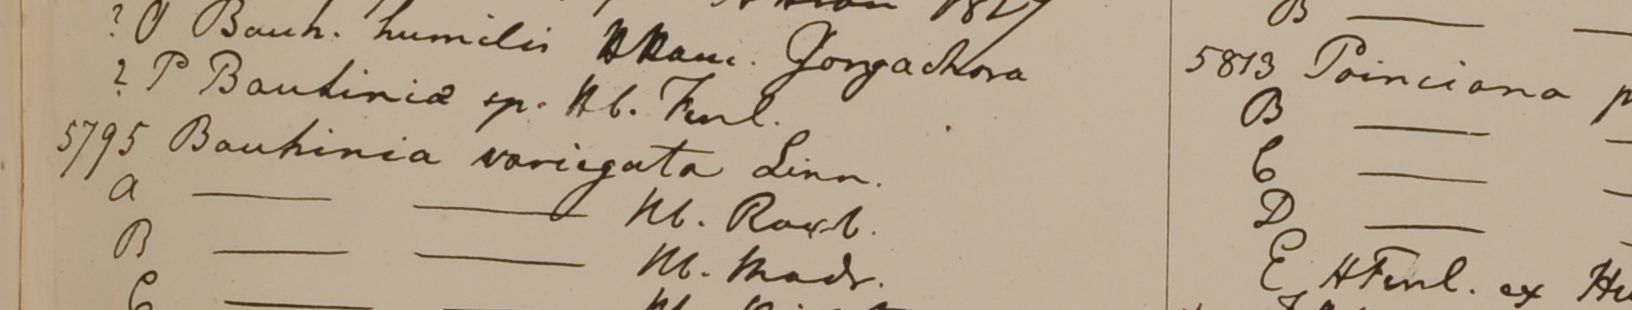 1827
? O Bauh. humilis HHam. Gongachora
? P Bauhiniæ sp. Hb. Finl.
5795 Bauhinia variegata Linn.
a — — Hb. Roxb.
B — — Hb. Madr.
C — — Hb.
B — —
5813 Poinciana
B — —
C — —
D —
E HFinl. ex